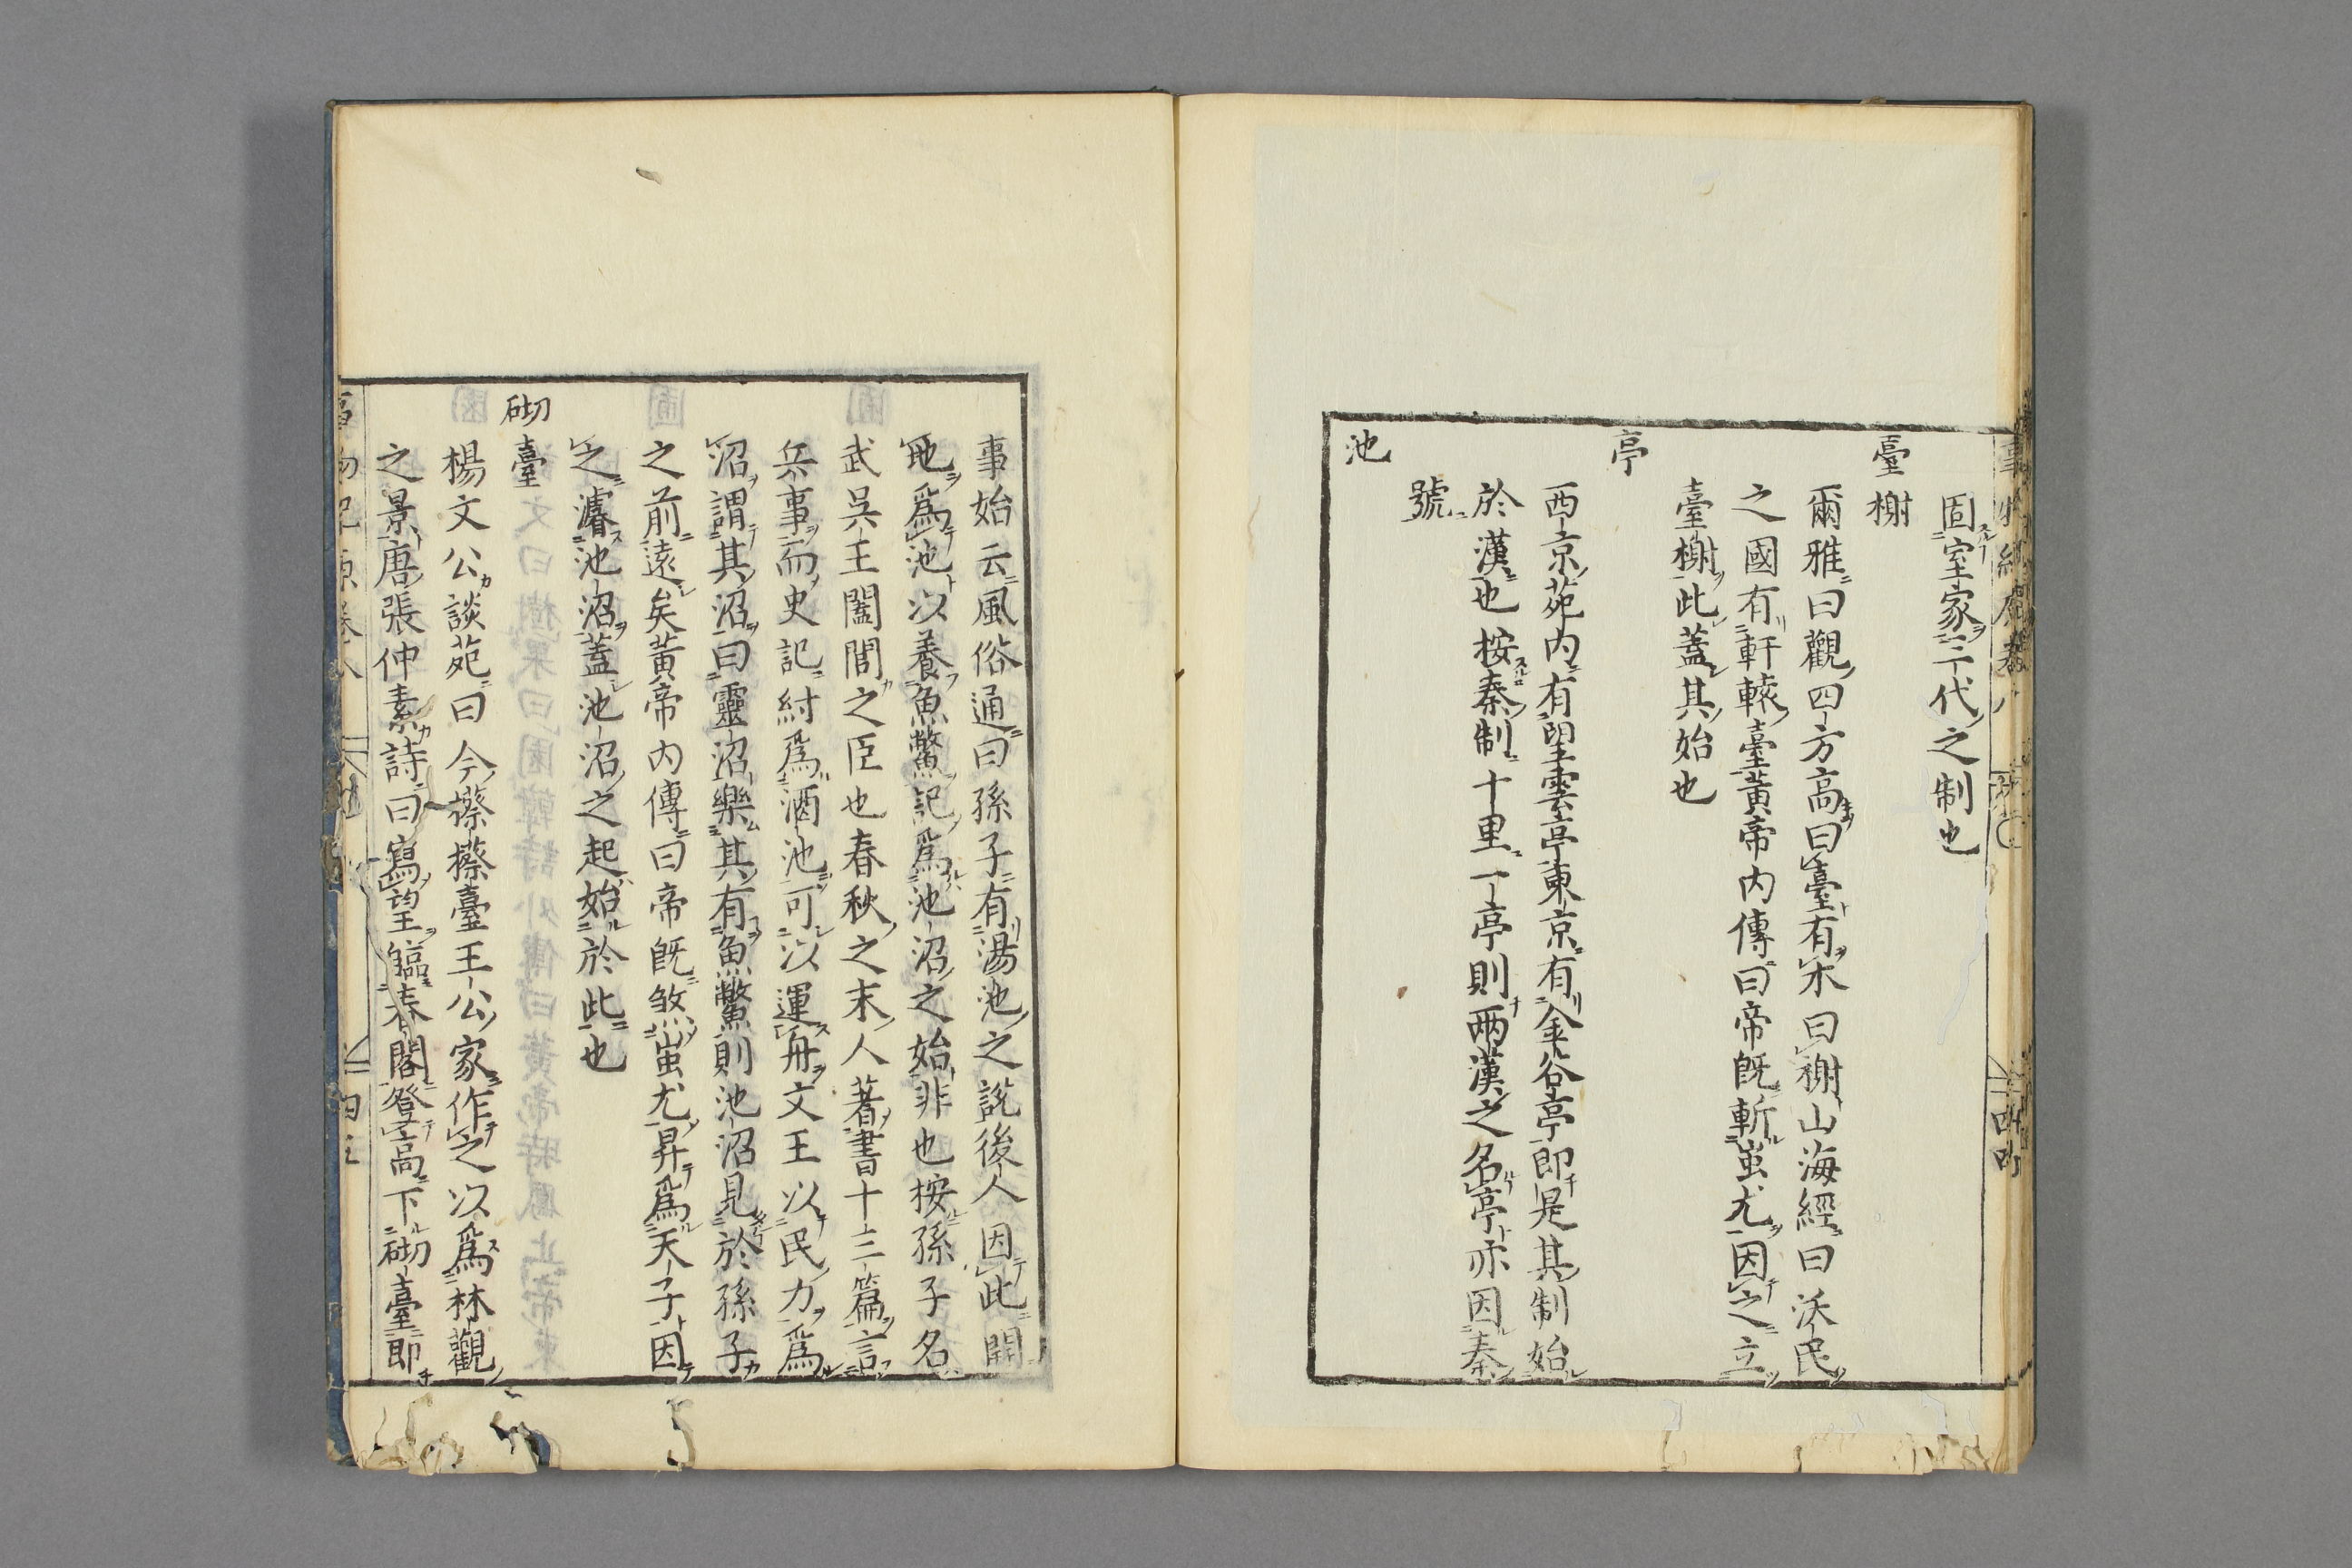 固室家三代之制也
臺榭
爾雅曰觀四方高曰臺有木曰榭山海經曰沃民
之國有軒轅臺黃帝内傳曰帝既斬蚩尤因之立
臺榭此蓋其始也
亭
西京苑内有望雲亭東京有金谷亭即是其制始
於漢也按秦制十里一亭則兩漢之名亭亦因秦
號
池
事始云風俗通曰孫子有湯池之說後人因此開
地爲池以養魚鱉記爲池沼之始非也按孫子名
武吳王闔閭之臣也春秋之末人著書十三篇言
兵事而史記紂爲酒池可以運舟文王以民力爲
沼謂其沼曰靈沼樂其有魚鱉則池沼見於孫子
之前遠矣黃帝内傳曰帝既煞蚩尤昇爲天子因
之濬池沼蓋池沼之起始於此也
砌臺
楊文公談苑曰今擦擦臺王公家作之以爲林觀
之景唐張仲素詩曰寫望臨春閣登高下砌臺即